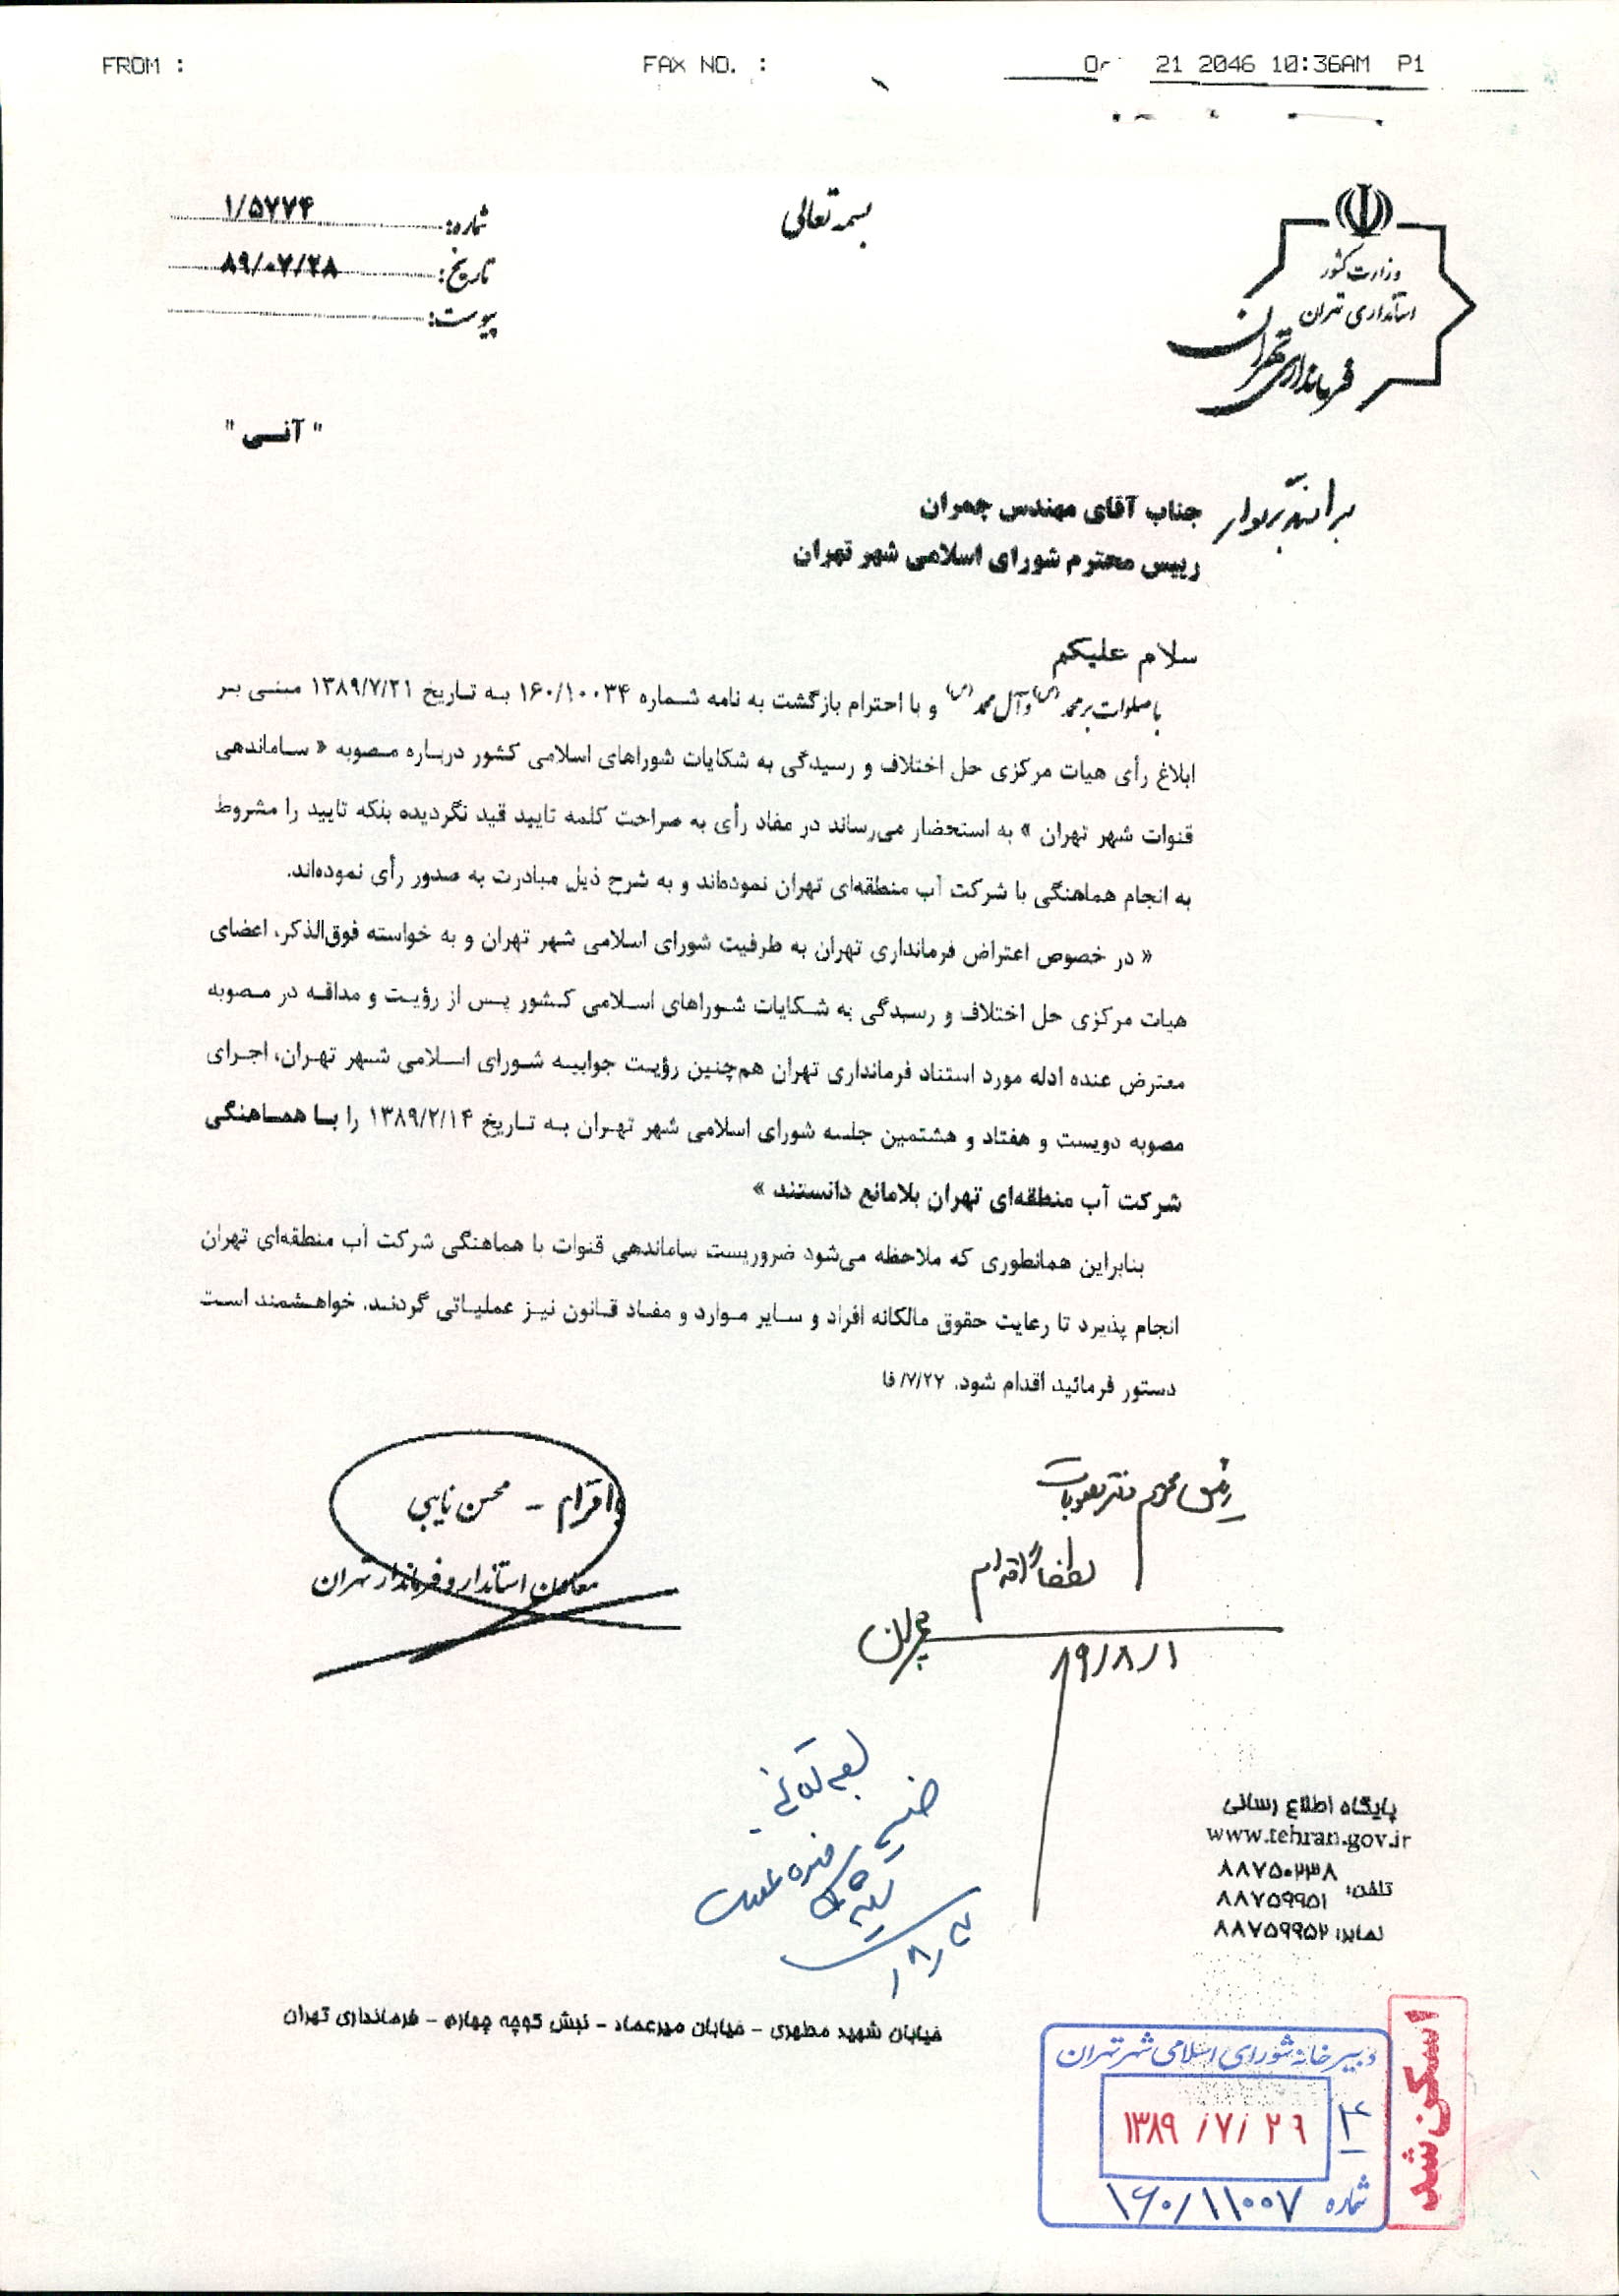 FROM :
FAX NO. :
21 2046 10:36AM P1
وزارت کشور
استانداری تهران
فرمانداری تهران
بسمه تعالی
شماره: ۱/۵۷۷۴
تاریخ: ۸۹/۰۷/۲۸
پیوست:
" آنی "
جناب آقای مهندس چمران
رییس محترم شورای اسلامی شهر تهران
سلام علیکم
با صلوات بر محمد (ص) و آل محمد (ص) و با احترام بازگشت به نامه شماره ۱۶۰/۱۰۰۳۴ به تاریخ ۱۳۸۹/۷/۲۱ مبنی بر
ابلاغ رأی هیات مرکزی حل اختلاف و رسیدگی به شکایات شوراهای اسلامی کشور درباره مصوبه « ساماندهی
قنوات شهر تهران » به استحضار می‌رساند در مفاد رأی به صراحت کلمه تایید قید نگردیده بلکه تایید را مشروط
به انجام هماهنگی با شرکت آب منطقه‌ای تهران نموده‌اند و به شرح ذیل مبادرت به صدور رأی نموده‌اند.
« در خصوص اعتراض فرمانداری تهران به طرفیت شورای اسلامی شهر تهران و به خواسته فوق‌الذکر، اعضای
هیات مرکزی حل اختلاف و رسیدگی به شکایات شوراهای اسلامی کشور پس از رؤیت و مداقه در مصوبه
معترض عنده ادله مورد استناد فرمانداری تهران هم‌چنین رؤیت جوابیه شورای اسلامی شهر تهران، اجرای
مصوبه دویست و هفتاد و هشتمین جلسه شورای اسلامی شهر تهران به تاریخ ۱۳۸۹/۲/۱۴ را با هماهنگی
شرکت آب منطقه‌ای تهران بلامانع دانستند »
بنابراین همانطوری که ملاحظه می‌شود ضروریست ساماندهی قنوات با هماهنگی شرکت آب منطقه‌ای تهران
انجام پذیرد تا رعایت حقوق مالکانه افراد و سایر موارد و مفاد قانون نیز عملیاتی گردند. خواهشمند است
دستور فرمائید اقدام شود. ۷/۲۷/ فا
با احترام - محسن نایبی
معاون استاندار و فرماندار تهران
رئیس محترم دفتر مصوبات
لطفاً اقدام
چمران
۸۹/۸/۱
پایگاه اطلاع رسانی
www.tehran.gov.ir
تلفن: ۸۸۷۵۰۲۳۸
۸۸۷۵۹۹۵۱
نمابر: ۸۸۷۵۹۹۵۲
خیابان شهید مطهری - خیابان میرعماد - نبش کوچه چهارم - فرمانداری تهران
دبیرخانه شورای اسلامی شهر تهران
۱۳۸۹ /۷/ ۲۹
شماره ۱۶۰/۱۱۰۰۷
اسکن شد